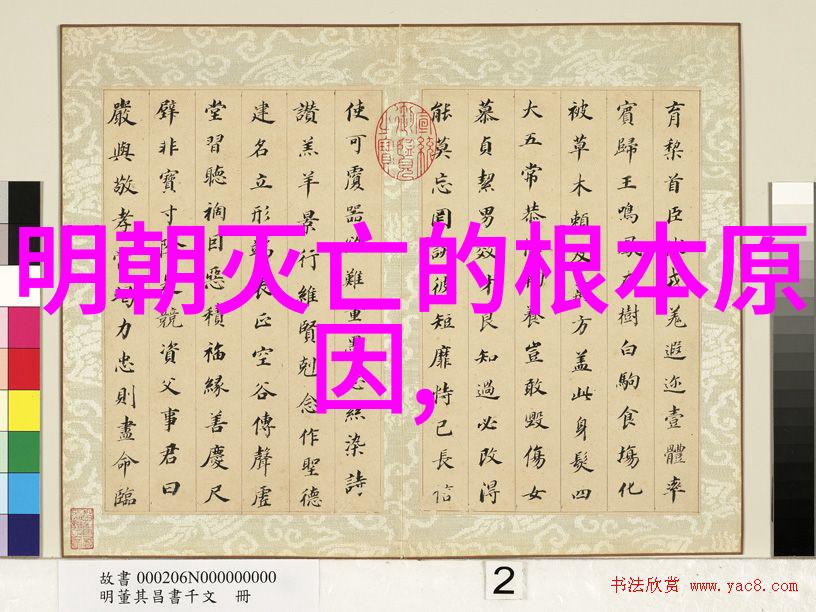 明朝灭亡的根本原
因,
育黎首臣戎羌遐迩壹體率
賓歸王鳴鳳在樹白駒食場化
被草木賴及方蓋此身髮四
大五常恭養豈敢毀傷女
慕貞絜男效才良知過必改得
能莫忘罔談彼短靡恃己長信
使可覆器欲難絲染詩
讚羔羊景行維賢剋念作聖德
建名立形端表正空谷傳聲虛
堂習聽禍因惡積福緣善慶尺
璧非寶寸競資父事君曰
嚴與敬孝當竭力忠則盡命臨
宣統御覽之寶
故書 000206N000000000
明董其昌書千文 冊
2
书法欣赏 www.yac8.com